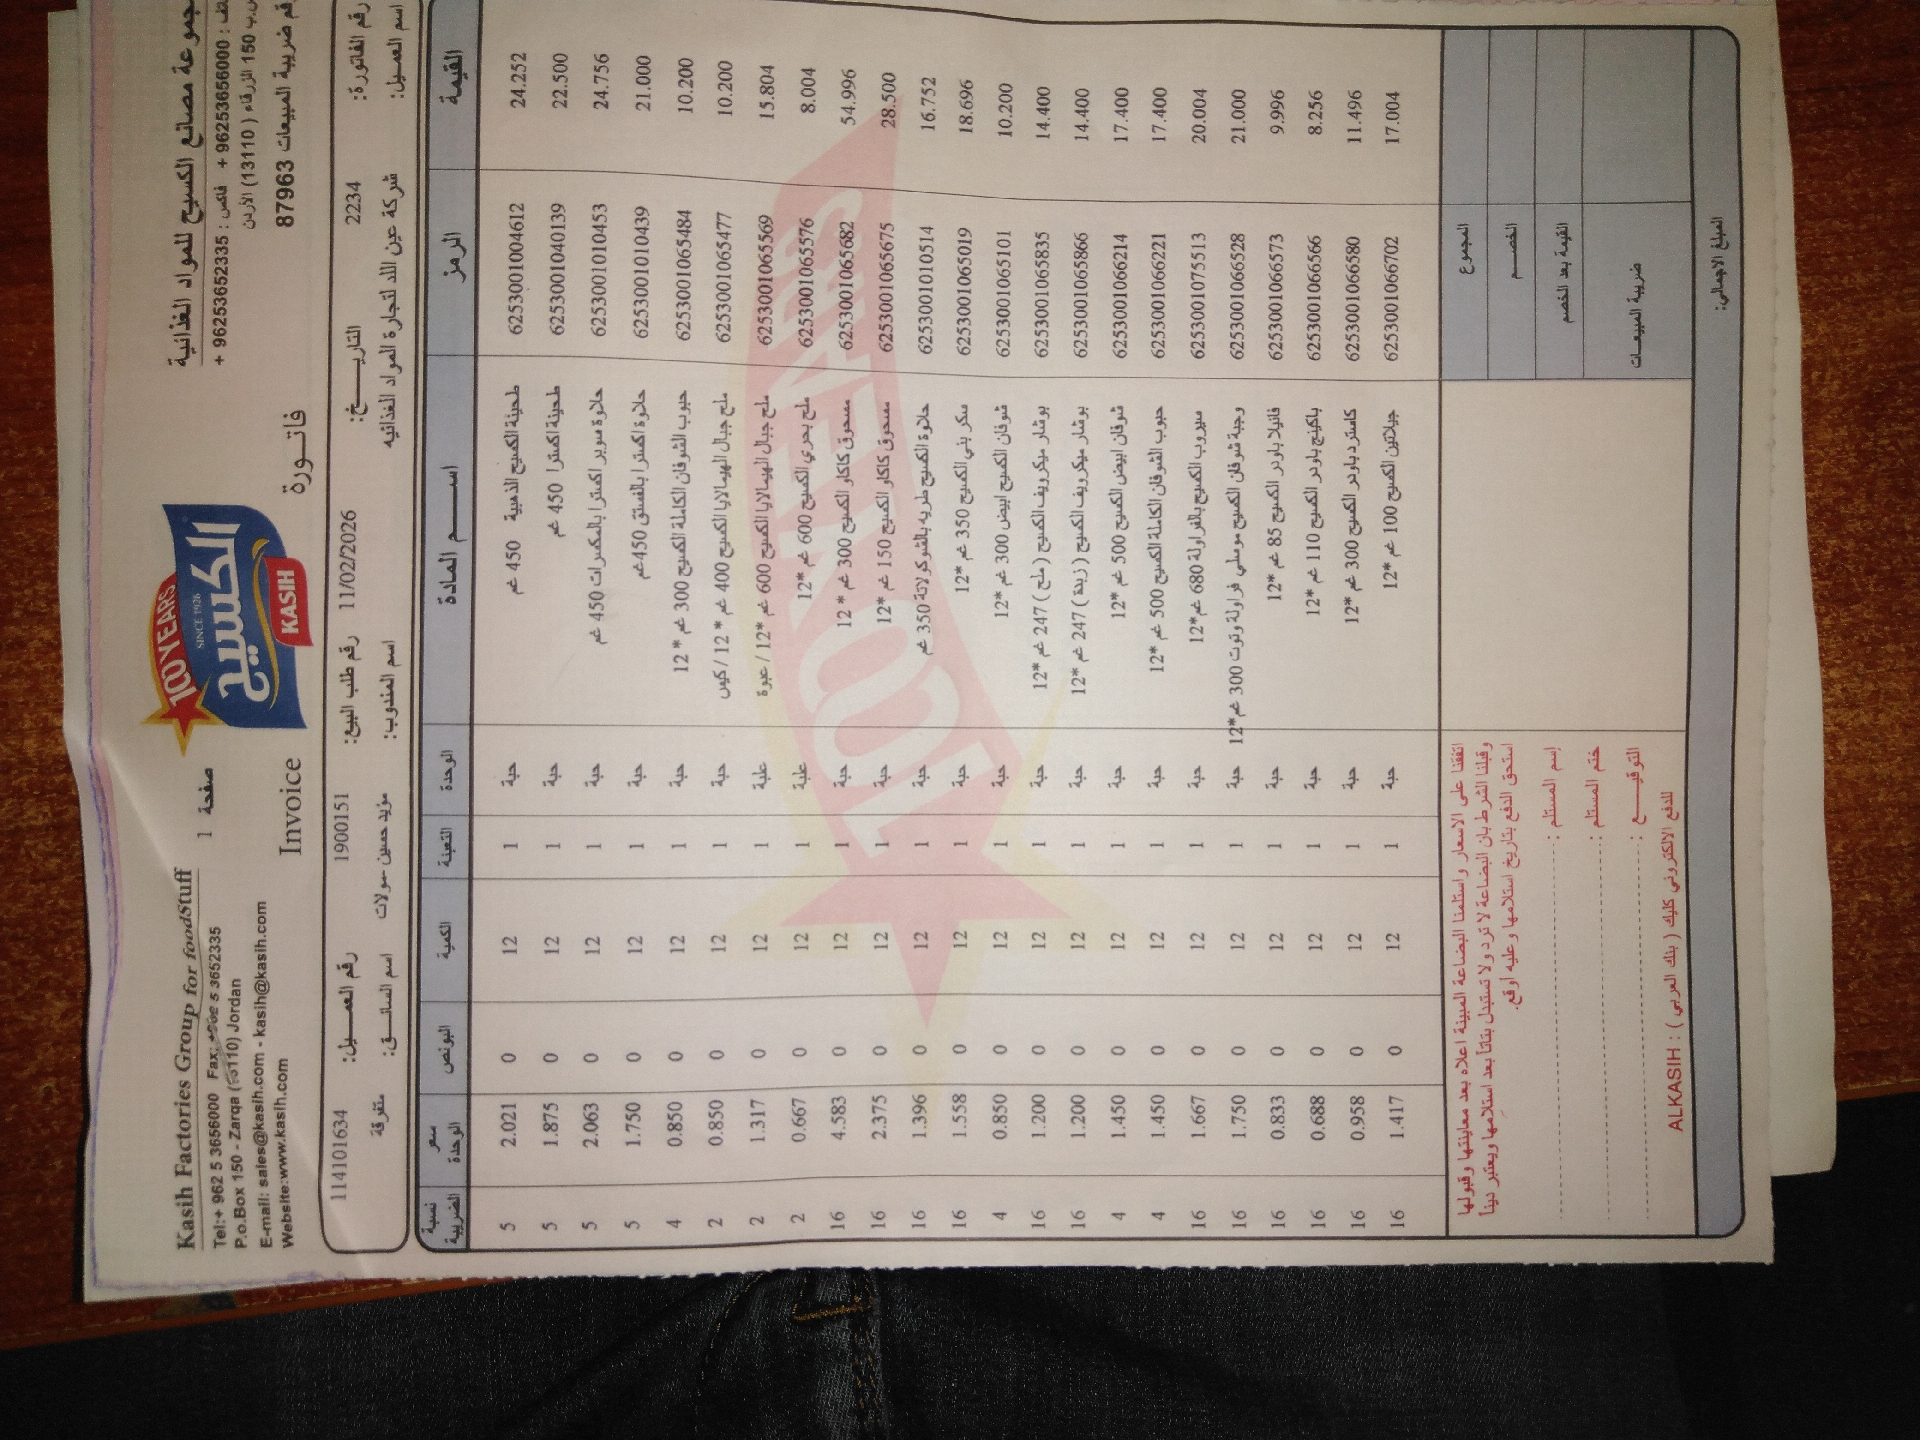 مجموعة مصانع الكسيح للمواد الغذائية
+ 96253656000 فاكس : + 96253652335
ص.ب 150 الزرقاء ( 13110 ) الأردن
رقم ضريبة المبيعات 87963
100 YEARS
SINCE 1926
الكسيح
KASIH
فاتـورة
Invoice
صفحة 1
Kasih Factories Group for foodStuff
Tel:+ 962 5 3656000 Fax: 5 3652335
P.o.Box 150 - Zarqa (13110) Jordan
E-mail: sales@kasih.com - kasih@kasih.com
Website:www.kasih.com
رقم الفاتورة: 2234 التاريـــخ: 11/02/2026 رقم طلب البيع: 1900151 رقم العميـل: 114101634
اسم العميل: شركة عين اللد لتجارة المواد الغذائيه اسم المندوب: مؤيد حسين مولات اسم السائـق: متفرقة
القيمة الرمز اســـم المـادة الوحدة التعبئة الكمية البونص سعر الوحدة نسبة الضريبة
24.252 6253001004612 طحينة الكسيح الذهبية 450 غم حبة 1 12 0 2.021 5
22.500 6253001040139 طحينة اكسترا 450 غم حبة 1 12 0 1.875 5
24.756 6253001010453 حلاوة سوبر اكسترا بالمكسرات 450 غم حبة 1 12 0 2.063 5
21.000 6253001010439 حلاوة اكسترا بالفستق 450غم حبة 1 12 0 1.750 5
10.200 6253001065484 حبوب الشوفان الكاملة الكسيح 300 غم *12 حبة 1 12 0 0.850 4
10.200 6253001065477 ملح جبال الهيمالايا الكسيح 400 غم * 12 / كيس حبة 1 12 0 0.850 2
15.804 6253001065569 ملح جبال الهيمالايا الكسيح 600 غم *12 / عبوة علبة 1 12 0 1.317 2
8.004 6253001065576 ملح بحري الكسيح 600 غم *12 علبة 1 12 0 0.667 2
54.996 6253001065682 مسحوق كاكاو الكسيح 300 غم * 12 حبة 1 12 0 4.583 16
28.500 6253001065675 مسحوق كاكاو الكسيح 150 غم *12 حبة 1 12 0 2.375 16
16.752 6253001010514 حلاوة الكسيح طريه بالشوكولاتة 350 غم حبة 1 12 0 1.396 16
18.696 6253001065019 سكر بني الكسيح 350 غم *12 حبة 1 12 0 1.558 16
10.200 6253001065101 شوفان الكسيح ابيض 300 غم *12 حبة 1 12 0 0.850 4
14.400 6253001065835 بوشار ميكرويف الكسيح ( ملح ) 247 غم *12 حبة 1 12 0 1.200 16
14.400 6253001065866 بوشار ميكرويف الكسيح ( زبدة ) 247 غم *12 حبة 1 12 0 1.200 16
17.400 6253001066214 شوفان ابيض الكسيح 500 غم *12 حبة 1 12 0 1.450 4
17.400 6253001066221 حبوب الشوفان الكاملة الكسيح 500 غم *12 حبة 1 12 0 1.450 4
20.004 6253001075513 سيروب الكسيح بالفراولة 680 غم*12 حبة 1 12 0 1.667 16
21.000 6253001066528 وجبة شوفان الكسيح موسلي فراولة وتوت 300 غم*12 حبة 1 12 0 1.750 16
9.996 6253001066573 فانيلا باودر الكسيح 85 غم *12 حبة 1 12 0 0.833 16
8.256 6253001066566 باكينج باودر الكسيح 110 غم *12 حبة 1 12 0 0.688 16
11.496 6253001066580 كاسترد باودر الكسيح 300 غم *12 حبة 1 12 0 0.958 16
17.004 6253001066702 جيلاتين الكسيح 100 غم *12 حبة 1 12 0 1.417 16
المجموع
الخصــم
القيمة بعد الخصم
ضريبة المبيعـات
المبلغ الاجمالي:
اتفقنا على الاسعار واستلمنا البضاعة المبينة اعلاه بعد معاينتها وقبولها
وقبلنا الشرط بان البضاعة لا ترد ولا تستبدل بتاتاً بعد استلامها ويعتبر ديناً
استحق الدفع بتاريخ استلامها وعليه أوقع.
إسم المستلم :
ختم المستلم :
التوقيـــع :
للدفع الالكتروني كليك ( بنك العربي ) : ALKASIH